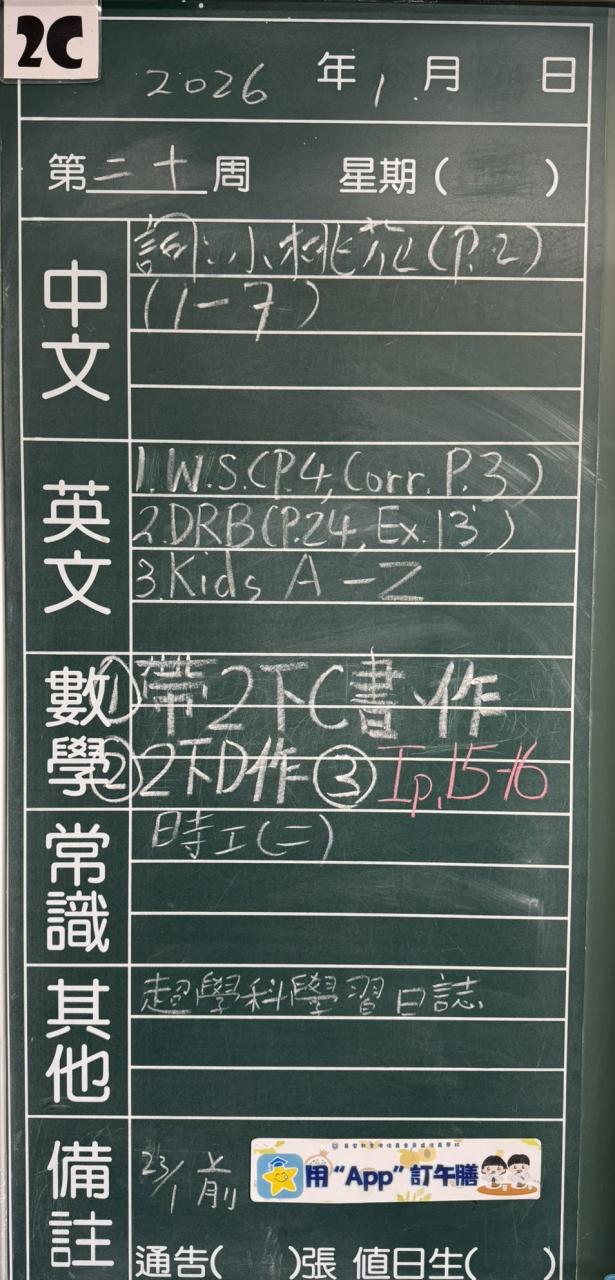 2C
2026 年 1 月 日
第 二十 周 星期( )
中文
詞:小桃花(P.2)
(1-7)
英文
1.W.S.(P.4,Corr.P.3)
2.DRB(P.24,Ex.13)
3.Kids A-Z
數學
①帶2下C書、作
②2下D作 ③ Ip.15-16
常識
時工(二)
其他
超學科學習日誌
備註
23/1 前
用“App”訂午膳
通告( )張 值日生( )